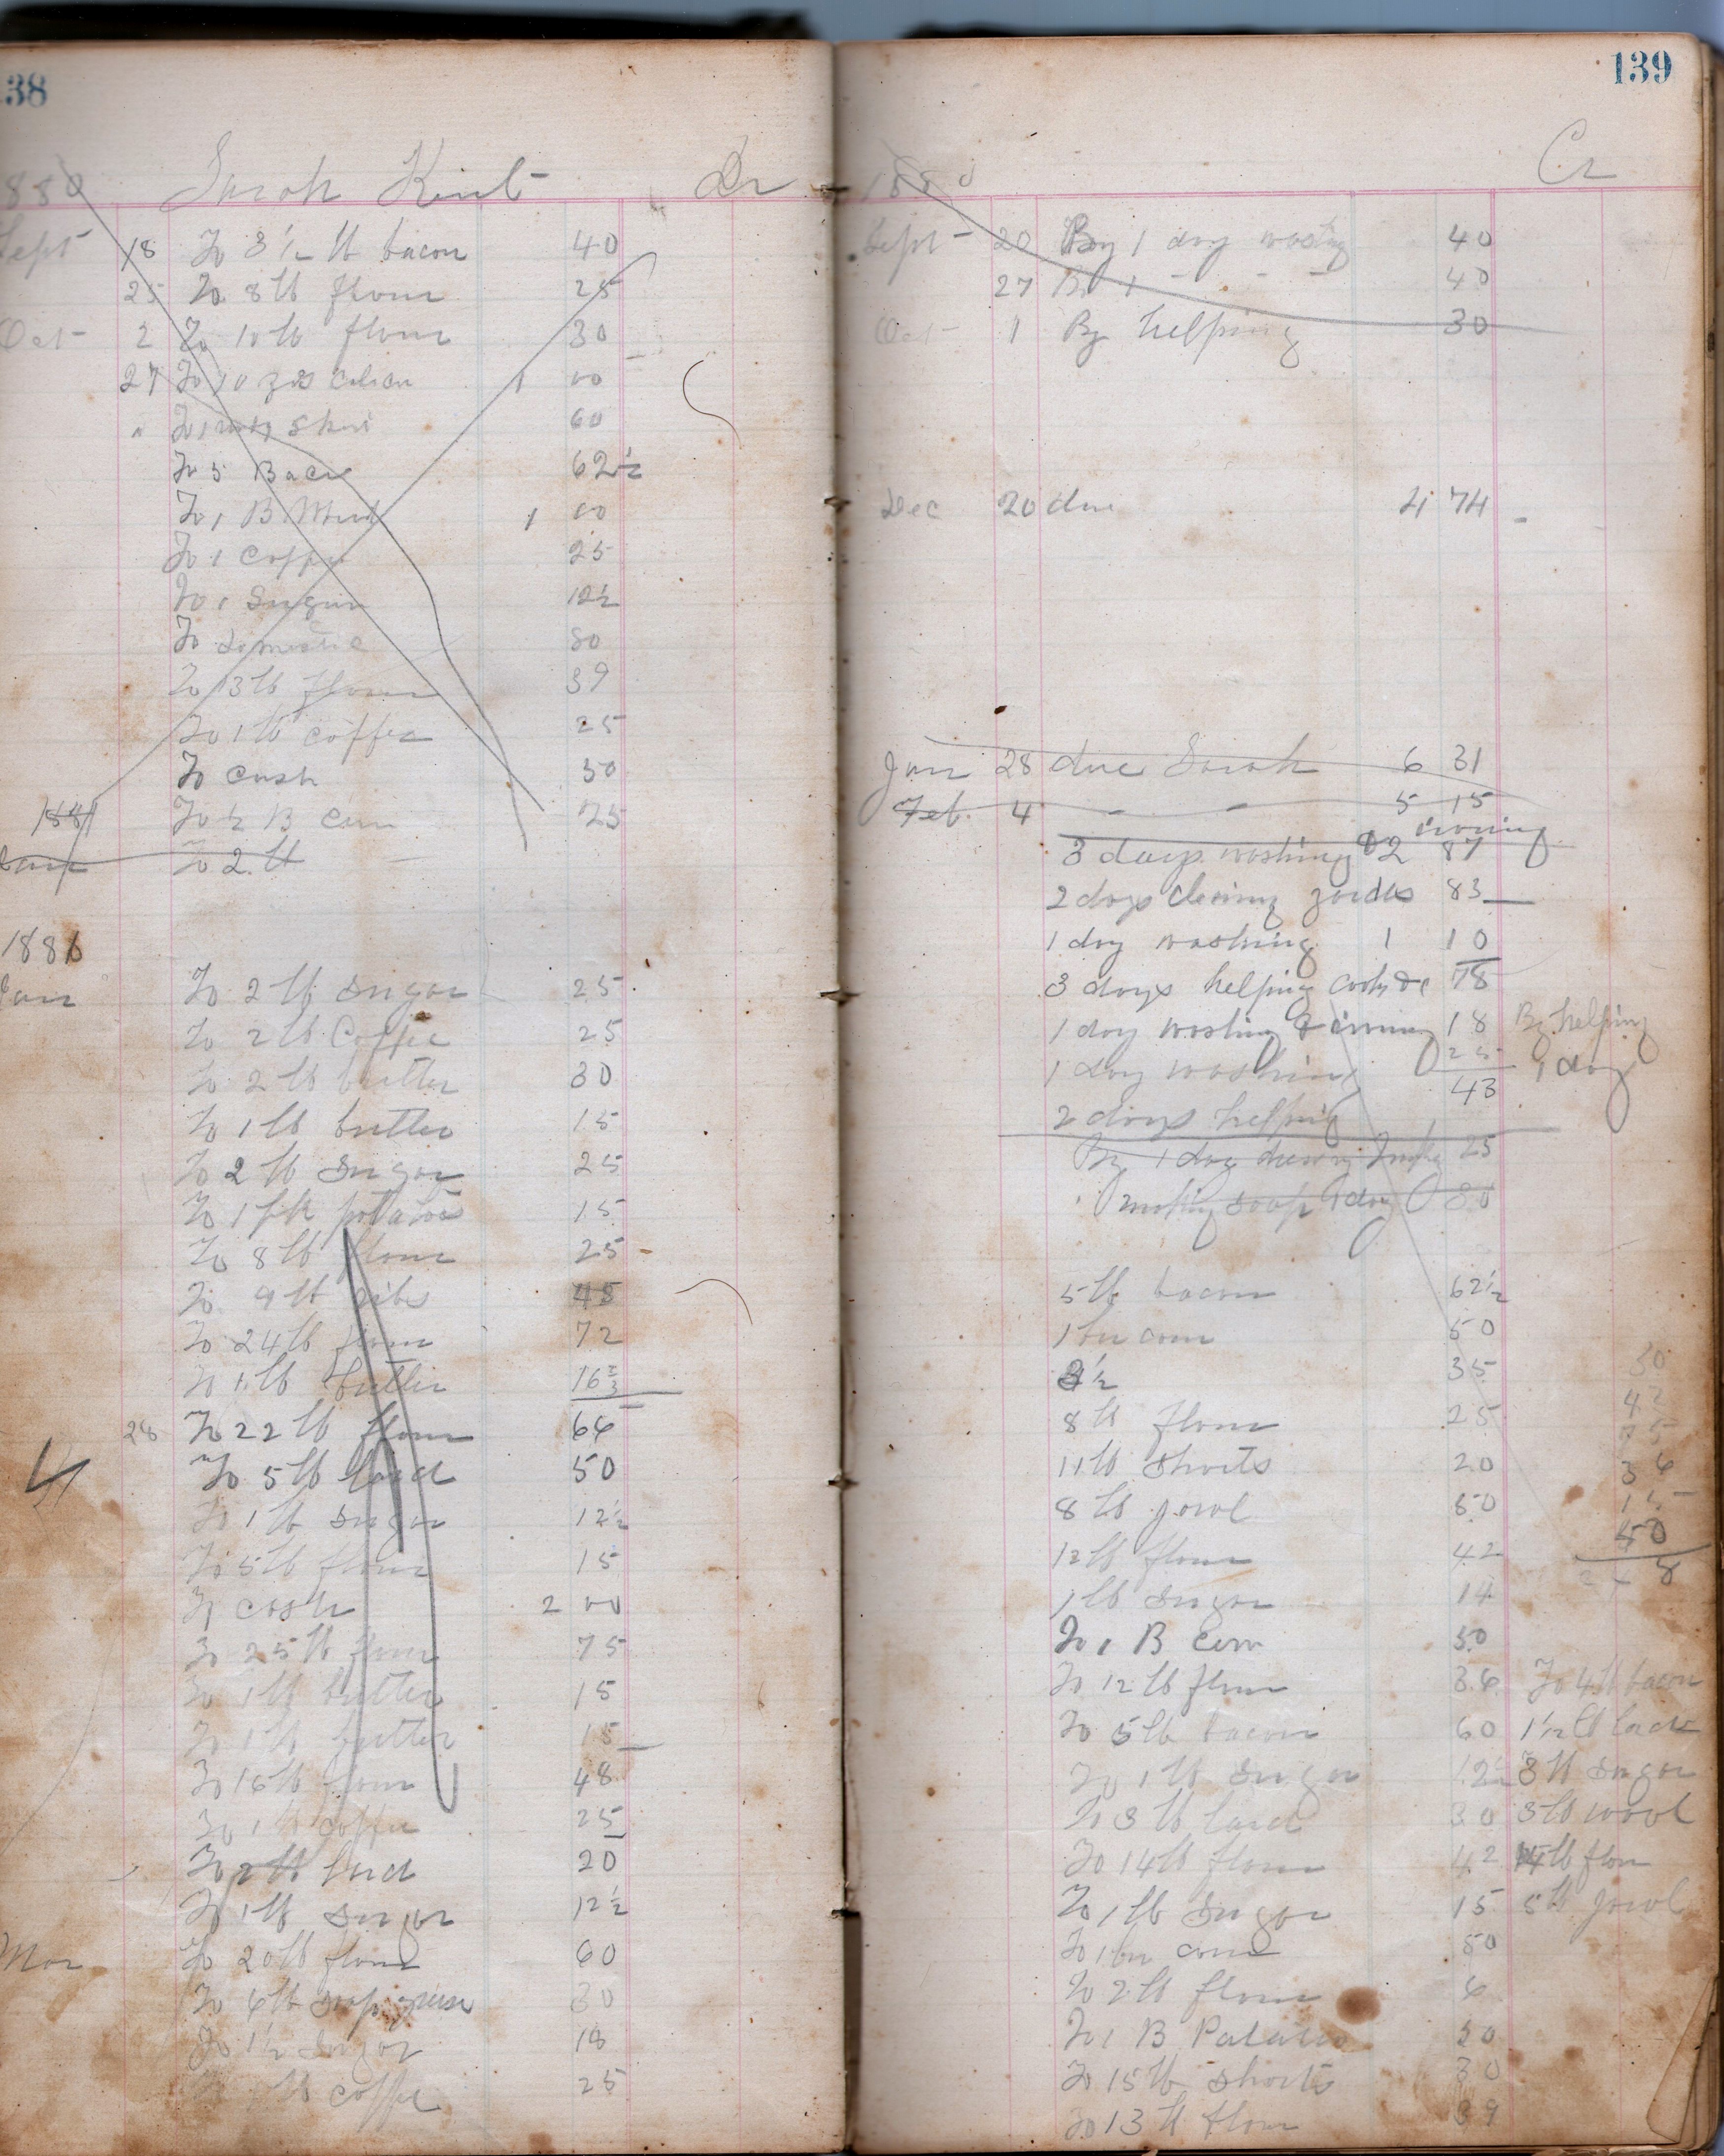 38
880 Sarah Kirt Dr
Sept 18 To 3 1/2 lb bacon 40
25 To 8 lb flour 25
Oct 2 To 10 lb flour 30
27 To 10 yds Calico 1 00
" To 1 Shoe 60
To 5 Bacon 62 1/2
To 1 B. Meal 1 00
To 1 Coffee 25
To 1 Sugar 12 1/2
To domestic 80
To 13 lb flour 39
To 1 lb coffee 25
To Cash 50
1881 To 1/2 B Corn 25
Jany To 2 lb
1881
Jan To 2 lb Sugar 25
To 2 lb Coffee 25
To 2 lb butter 30
To 1 lb butter 15
To 2 lb Sugar 25
To 1 pk potatoes 15
To 8 lb flour 25
To 9 lb ribs 45
To 24 lb flour 72
To 1 lb butter 16 2/3
28 To 22 lb flour 66
To 5 lb lard 50
To 1 lb Sugar 12 1/2
To 5 lb flour 15
To cash 2 00
To 25 lb flour 75
To 1 lb butter 15
To 1 lb butter 15
To 16 lb flour 48
To 1 lb coffee 25
To 2 lb lard 20
To 1 lb Sugar 12 1/2
Mar To 20 lb flour 60
To 6 lb soap grease 30
To 1 1/2 Sugar 18
lb coffee 25
139
1880 Cr
Sept 20 By 1 day washing 40
27 By 1 - - - 40
Oct 1 By helping 30
Dec 20 due 4 74
Jan 28 due Sarah 6 31
Feb. 4 - - 5 15
ironing
3 days washing & 2 87
2 days cleaning garden 83
1 day washing 1 10
3 days helping cook &c 78
1 day washing & ironing 18 By helping
1 day washing 25 1 day
43
2 days helping
By 1 day 25
making soap 1 day 30
5 lb bacon 62 1/2
1 bu corn 50
3 1/2 35
8 lb flour 25
11 lb Shorts 20
8 lb jowl 50
12 lb flour 42
1 lb Sugar 14
To 1 B Corn 50
To 12 lb flour 36 To 4 lb bacon
To 5 lb bacon 60 1 1/2 lb lard
To 1 lb Sugar 12 1/2 3 lb Sugar
To 3 lb lard 30 3 lb wool
To 14 lb flour 42 14 lb flour
To 1 lb Sugar 15 5 lb jowl
To 1 bu corn 50
To 2 lb flour 6
To 1 B Patatoes 50
To 15 lb Shorts 30
To 13 lb flour 39
30
42
75
36
15
50